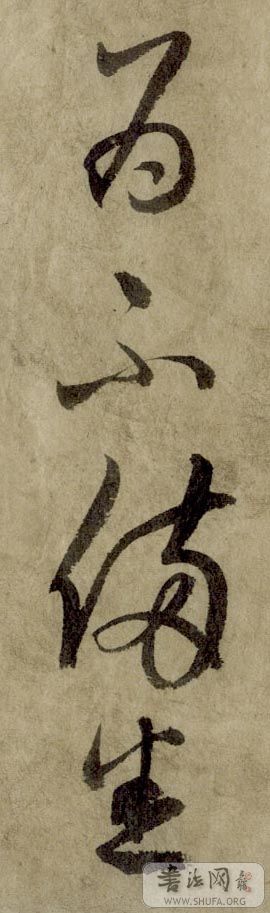 為不備生
書法网
WWW.SHUFA.ORG